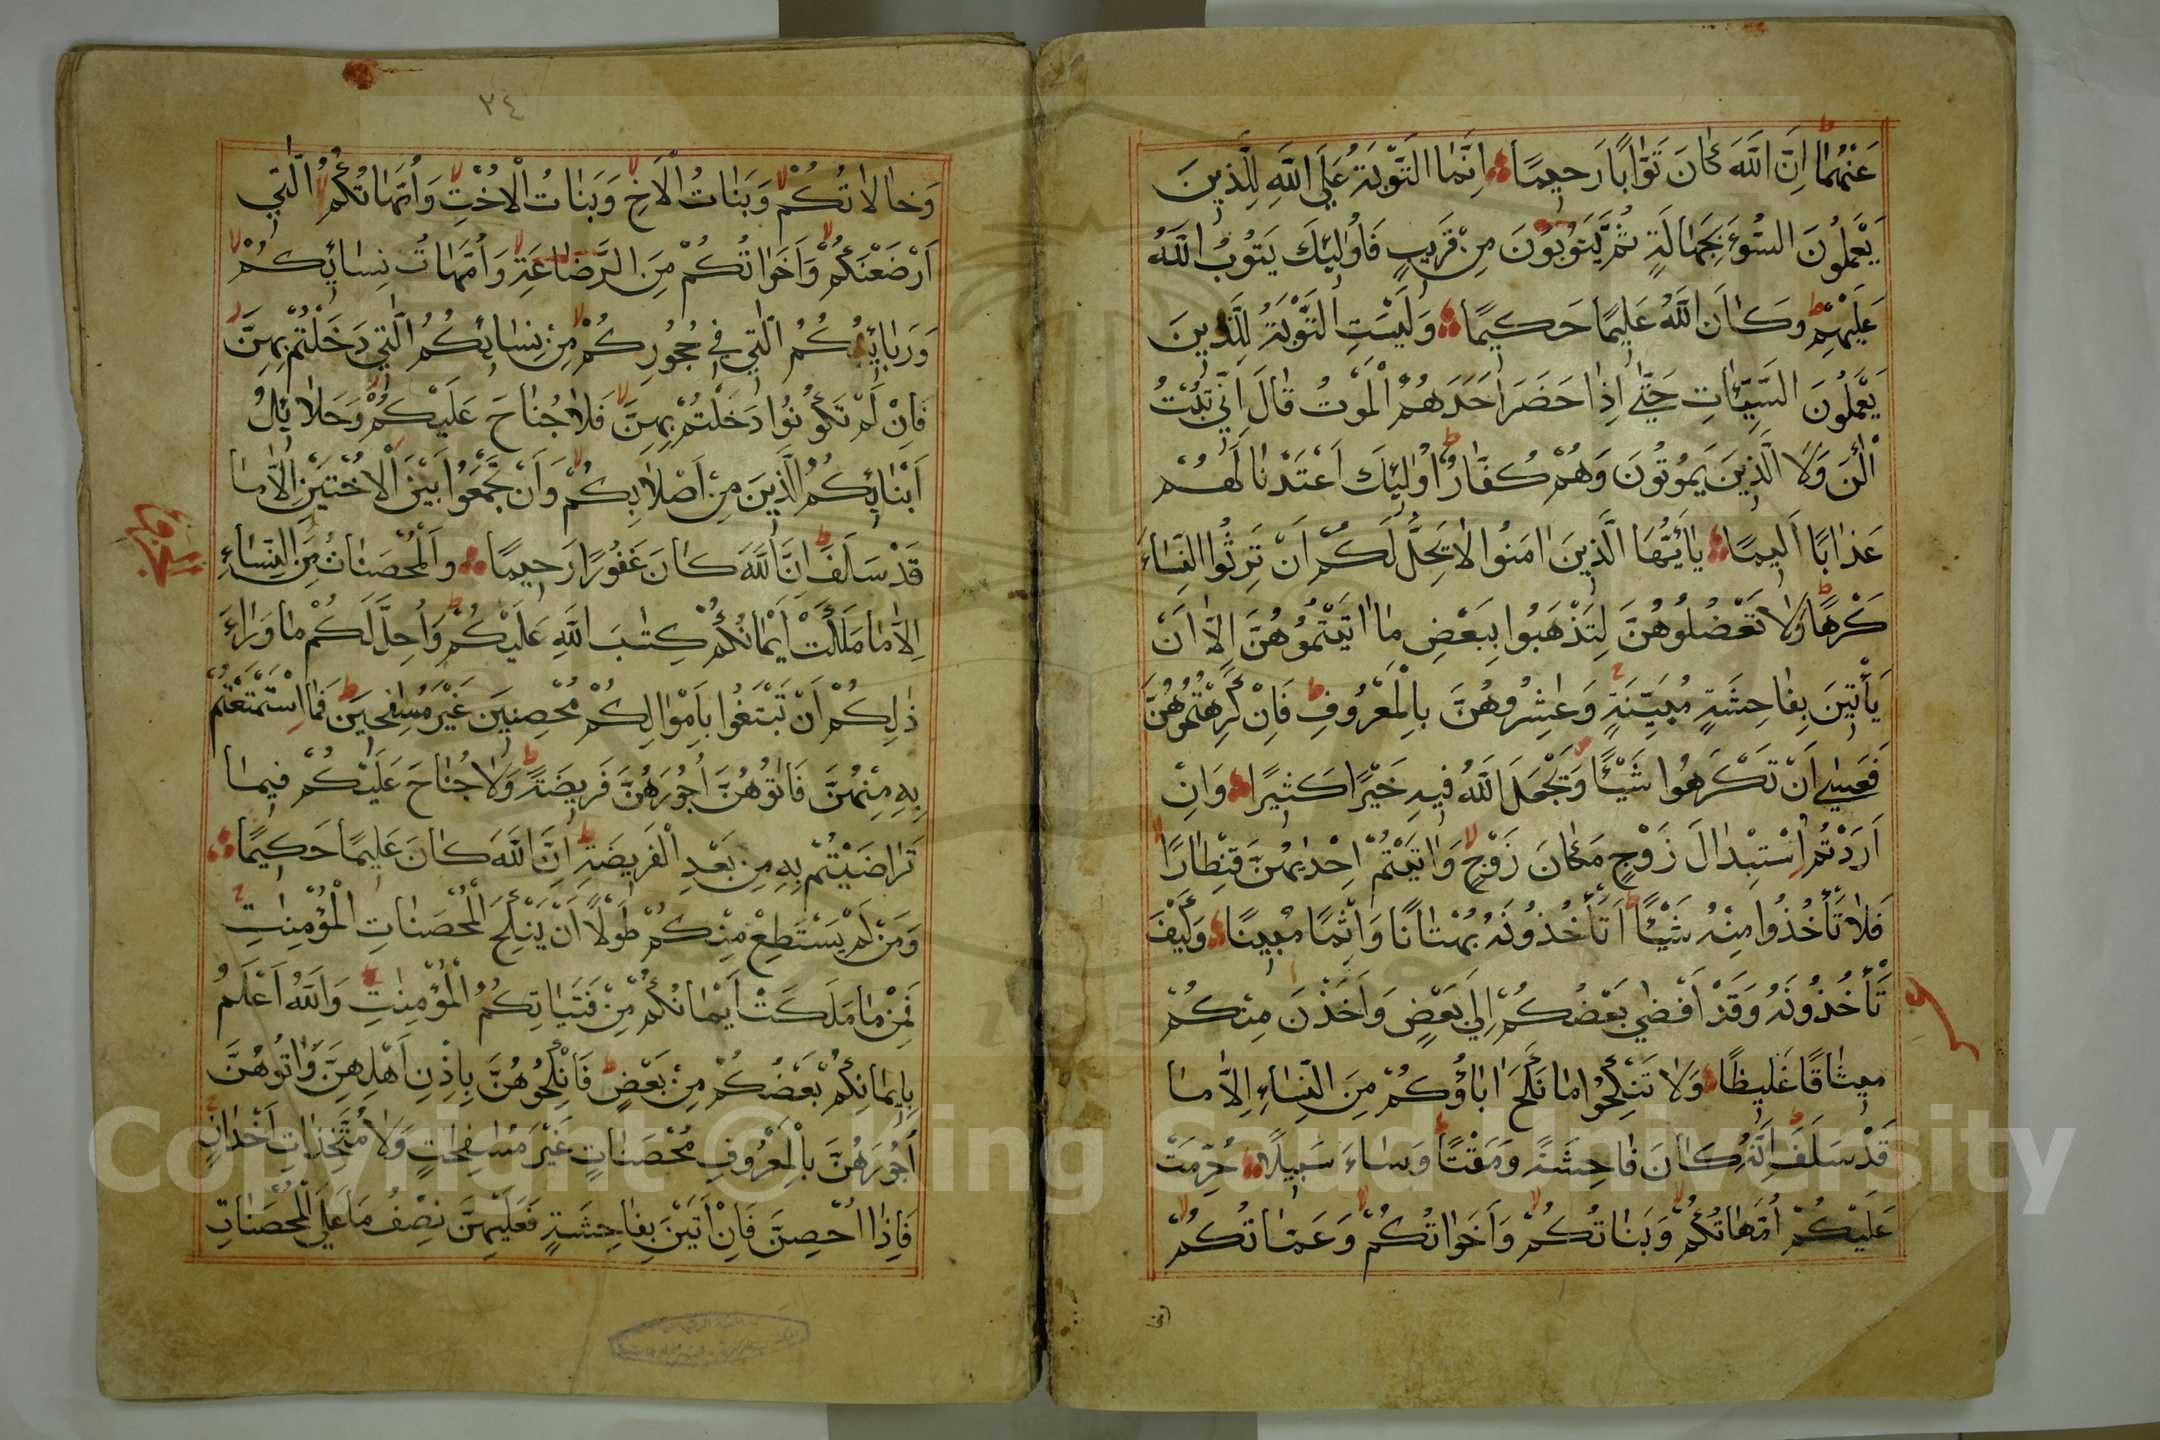 عَنْهُمَا اِنَّ اللّٰهَ كَانَ تَوَّابًا رَحيمًا اِنَّمَا التَّوْبَةُ عَلَى اللّٰهِ لِلَّذينَ
يَعْمَلُونَ السُّوٓءَ بِجَهَالَةٍ ثُمَّ يَتُوبُونَ مِنْ قَريبٍ فَاُولٰئِكَ يَتُوبُ اللّٰهُ
عَلَيْهِمْ وَكَانَ اللّٰهُ عَليمًا حَكيمًا وَلَيْسَتِ التَّوْبَةُ لِلَّذينَ
يَعْمَلُونَ السَّيِّئَاتِ حَتّٰى اِذَا حَضَرَ اَحَدَهُمُ الْمَوْتُ قَالَ اِنّى تُبْتُ
الْئٰنَ وَلَا الَّذينَ يَمُوتُونَ وَهُمْ كُفَّارٌ اُولٰئِكَ اَعْتَدْنَا لَهُمْ
عَذَابًا اَليمًا يَاأَيُّهَا الَّذينَ اٰمَنُوا لَا يَحِلُّ لَكُمْ اَنْ تَرِثُوا النِّسَاءَ
كَرْهًا وَلَا تَعْضُلُوهُنَّ لِتَذْهَبُوا بِبَعْضِ مَا اٰتَيْتُمُوهُنَّ اِلَّا اَنْ
يَأْتينَ بِفَاحِشَةٍ مُبَيِّنَةٍ وَعَاشِرُوهُنَّ بِالْمَعْرُوفِ فَاِنْ كَرِهْتُمُوهُنَّ
فَعَسٰى اَنْ تَكْرَهُوا شَيْئًا وَيَجْعَلَ اللّٰهُ فيهِ خَيْرًا كَثيرًا وَاِنْ
اَرَدْتُمُ اسْتِبْدَالَ زَوْجٍ مَكَانَ زَوْجٍ وَاٰتَيْتُمْ اِحْدٰيهُنَّ قِنْطَارًا
فَلَا تَأْخُذُوا مِنْهُ شَيْئًا اَتَأْخُذُونَهُ بُهْتَانًا وَاِثْمًا مُبينًا وَكَيْفَ
تَأْخُذُونَهُ وَقَدْ اَفْضٰى بَعْضُكُمْ اِلٰى بَعْضٍ وَاَخَذْنَ مِنْكُمْ
ميثَاقًا غَليظًا وَلَا تَنْكِحُوا مَا نَكَحَ اٰبَاؤُكُمْ مِنَ النِّسَاءِ اِلَّا مَا
قَدْ سَلَفَ اِنَّهُ كَانَ فَاحِشَةً وَمَقْتًا وَسَاءَ سَبيلًا حُرِّمَتْ
عَلَيْكُمْ اُمَّهَاتُكُمْ وَبَنَاتُكُمْ وَاَخَوَاتُكُمْ وَعَمَّاتُكُمْ
٣٤
وَخَالَاتُكُمْ وَبَنَاتُ الْاَخِ وَبَنَاتُ الْاُخْتِ وَاُمَّهَاتُكُمُ الّٰتى
اَرْضَعْنَكُمْ وَاَخَوَاتُكُمْ مِنَ الرَّضَاعَةِ وَاُمَّهَاتُ نِسَائِكُمْ
وَرَبَائِبُكُمُ الّٰتى فى حُجُورِكُمْ مِنْ نِسَائِكُمُ الّٰتى دَخَلْتُمْ بِهِنَّ
فَاِنْ لَمْ تَكُونُوا دَخَلْتُمْ بِهِنَّ فَلَا جُنَاحَ عَلَيْكُمْ وَحَلَائِلُ
اَبْنَائِكُمُ الَّذينَ مِنْ اَصْلَابِكُمْ وَاَنْ تَجْمَعُوا بَيْنَ الْاُخْتَيْنِ اِلَّا مَا
قَدْ سَلَفَ اِنَّ اللّٰهَ كَانَ غَفُورًا رَحيمًا وَالْمُحْصَنَاتُ مِنَ النِّسَاءِ
اِلَّا مَا مَلَكَتْ اَيْمَانُكُمْ كِتٰبَ اللّٰهِ عَلَيْكُمْ وَاُحِلَّ لَكُمْ مَا وَرَاءَ
ذٰلِكُمْ اَنْ تَبْتَغُوا بِاَمْوَالِكُمْ مُحْصِنينَ غَيْرَ مُسَافِحينَ فَمَا اسْتَمْتَعْتُمْ
بِهِ مِنْهُنَّ فَاٰتُوهُنَّ اُجُورَهُنَّ فَريضَةً وَلَا جُنَاحَ عَلَيْكُمْ فيمَا
تَرَاضَيْتُمْ بِهِ مِنْ بَعْدِ الْفَريضَةِ اِنَّ اللّٰهَ كَانَ عَليمًا حَكيمًا
وَمَنْ لَمْ يَسْتَطِعْ مِنْكُمْ طَوْلًا اَنْ يَنْكِحَ الْمُحْصَنَاتِ الْمُؤْمِنَاتِ
فَمِنْ مَا مَلَكَتْ اَيْمَانُكُمْ مِنْ فَتَيَاتِكُمُ الْمُؤْمِنَاتِ وَاللّٰهُ اَعْلَمُ
بِايمَانِكُمْ بَعْضُكُمْ مِنْ بَعْضٍ فَانْكِحُوهُنَّ بِاِذْنِ اَهْلِهِنَّ وَاٰتُوهُنَّ
اُجُورَهُنَّ بِالْمَعْرُوفِ مُحْصَنَاتٍ غَيْرَ مُسَافِحَاتٍ وَلَا مُتَّخِذَاتِ اَخْدَانٍ
فَاِذَا اُحْصِنَّ فَاِنْ اَتَيْنَ بِفَاحِشَةٍ فَعَلَيْهِنَّ نِصْفُ مَا عَلَى الْمُحْصَنَاتِ
Copyright © King Saud University